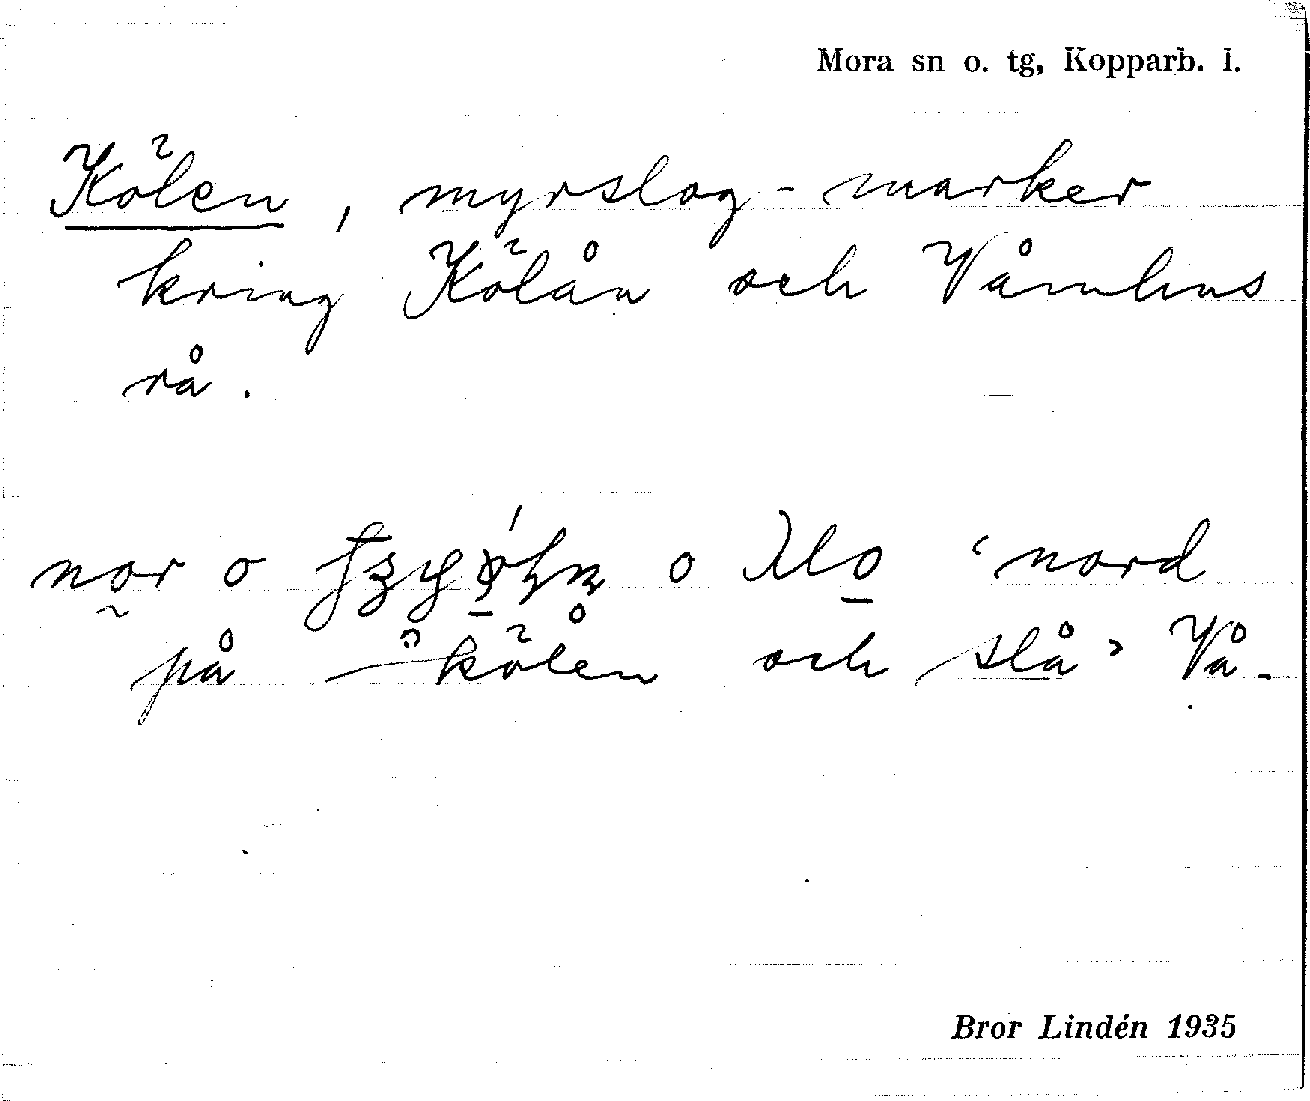 Mora sn o. tg, Kopparb. l.
Kölen, myrslog-marker
kring Kölån och Våmhus
rå.
nor o o 'nord
på kölen och slå' Vå-
Bror Lindén 1935